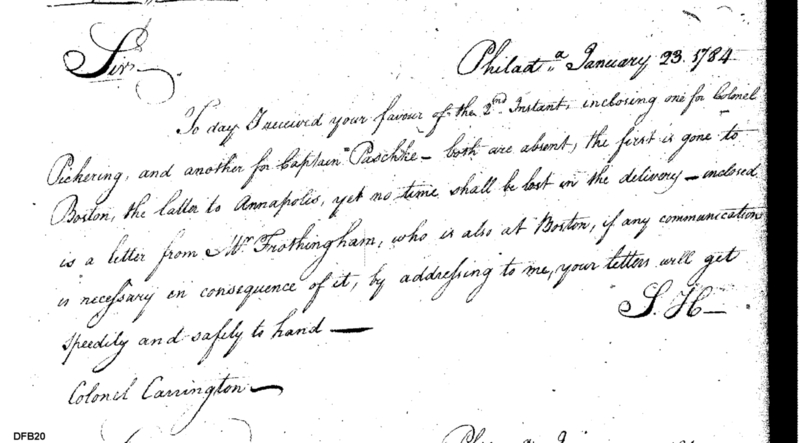 Philad.ª January 23. 1784
Sir,
To day I received your favour of the 2nd Instant, inclosing one for Colonel
Pickering, and another for Captain Paschke – both are absent, the first is gone to
Boston, the latter to Annapolis, yet no time shall be lost in the delivery – inclosed
is a letter from Mr. Frothingham, who is also at Boston, if any communication
is necessary en consequence of it, by addressing to me, your letters will get
speedily and safely to hand —
S. H —
Colonel Carrington —
DFB20